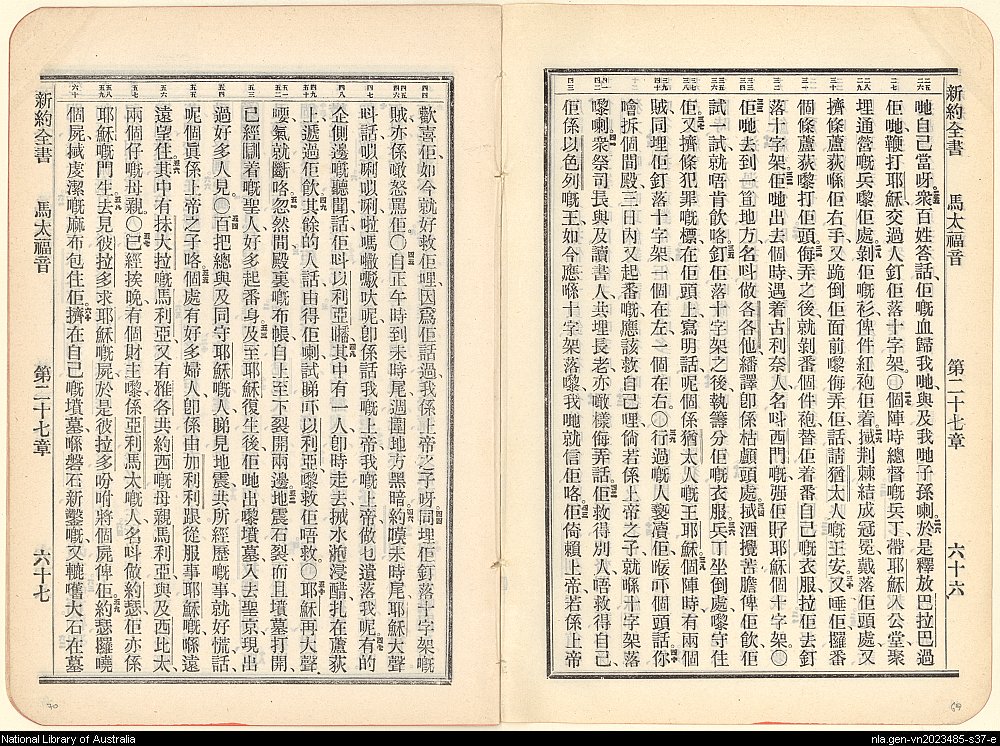 新約全書 馬太福音 第二十七章 六十六
吔自己當呀衆百姓答話佢嘅血歸我吔與及我吔子孫喇於是釋放巴拉巴過
佢吔鞭打耶穌交過人釘佢落十字架〇個陣時總督嘅兵丁帶耶穌入公堂聚
埋通營嘅兵嚟佢處剝佢嘅衫俾件紅袍佢着搣荆棘結成冠冕戴落佢頭處又
擠條蘆荻喺佢右手又跪倒佢面前嚟侮弄佢話請猶太人嘅王安又唾佢攞番
個條蘆荻嚟打佢頭侮弄之後就剝番個件袍替佢着番自己嘅衣服拉佢去釘
落十字架佢吔出去個時遇着古利奈人名呌西門嘅强佢孭耶穌個十字架〇
佢吔去到一笪地方名呌做各各他繙譯卽係枯顱頭處搣酒攪苦膽俾佢飲佢
試一試就唔肯飲咯釘佢落十字架之後執籌分佢嘅衣服兵丁坐倒處嚟守住
佢又擠條犯罪嘅標在佢頭上寫明話呢個係猶太人嘅王耶穌個陣時有兩個
賊同埋佢釘落十字架一個在左一個在右〇行過嘅人褻瀆佢㬹吓個頭話你
噲拆個間殿三日內又起番嘅應該救自己哩倘若係上帝之子就喺十字架落
嚟喇衆祭司長與及讀書人共埋長老亦噉樣侮弄話佢救得別人唔救得自己
佢係以色列嘅王如今應喺十字架落嚟我吔就信佢咯佢倚賴上帝若係上帝
歡喜佢如今就好救佢哩因爲佢話過我係上帝之子呀同埋佢釘落十字架嘅
賊亦係噉怒罵佢〇自正午時到未時尾週圍地方黑暗約嘆未時尾耶穌大聲
呌話唎唎唎啦嗎撒呔呢卽係話我嘅上帝我嘅上帝做乜遺落我呢有的
企側邊嘅聽聞話佢呌以利亞𡀝其中有一人卽時走去搣水𤄷浸醋扎在蘆荻
上遞過佢飲其餘的人話由得佢喇試睇吓以利亞嚟救佢唔救〇耶穌再大聲
嗌氣就斷咯忽然間殿裏嘅布帳自上至下裂開兩邊地震石裂而且墳墓打開
己經瞓着嘅聖人好多起番身及至耶穌復生後佢吔出嚟墳墓入去聖京現出
過好多人見〇百把總與及同守耶穌嘅人睇見地震共所經歷嘅事就好慌話
呢個眞係上帝之子咯個處有好多婦人卽係由加利利跟從服事耶穌嘅喺遠
遠望住其中有抹大拉嘅馬利亞又有雅各共約西嘅母親馬利亞與及西比太
兩個仔嘅母親〇已經挨晚有個財主嚟係亞利馬太嘅人名呌做約瑟佢亦係
耶穌嘅門生去見彼拉多求耶穌嘅屍於是彼拉多吩咐將個屍俾佢約瑟攞曉
個屍搣虔潔嘅麻布包住佢擠在自己嘅墳墓喺磐石新鑿嘅又轆嚿大石在墓
新約全書 馬太福音 第二十七章 六十七
69
70
National Library of Australia
nla.gen-vn2023485-s37-e